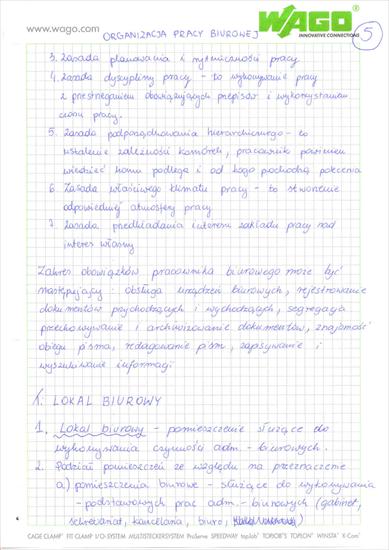 www.wago.com
WAGO
INNOVATIVE CONNECTIONS
5
ORGANIZACJA PRACY BIUROWEJ
3. Zasada planowania i rytmiczności pracy
4. Zasada dyscypliny pracy - to wykonywanie pracy
z przestrzeganiem obowiązujących przepisów i wykorzystaniem
czasu pracy.
5. Zasada podporządkowania hierarchicznego - to
ustalenie zależności komórek, pracownik powinien
wiedzieć komu podlega i od kogo pochodzą polecenia
6 Zasada właściwego klimatu pracy - to stworzenie
odpowiedniej atmosfery pracy
7. Zasada przedkładania interesu zakładu pracy nad
interes własny
Zakres obowiązków pracownika biurowego może być
następujący: obsługa urządzeń biurowych, rejestrowanie
dokumentów przychodzących i wychodzących, segregacja
przechowywanie i archiwizowanie dokumentów, znajomość
obiegu pisma, redagowanie pism, zapisywanie i
wyszukiwanie informacji
1. LOKAL BIUROWY
1. Lokal biurowy - pomieszczenie służące do
wykonywania czynności adm. - biurowych.
2. Podział pomieszczeń ze względu na przeznaczenie
a) pomieszczenia biurowe - służące do wykonywania
- podstawowych prac adm. - biurowych (gabinet,
sekretariat, kancelaria, biuro,
CAGE CLAMP FIT CLAMP I/O-SYSTEM MULTISTECKERSYSTEM ProServe SPEEDWAY topJob TOPJOB'S TOPLON WINSTA X-Com